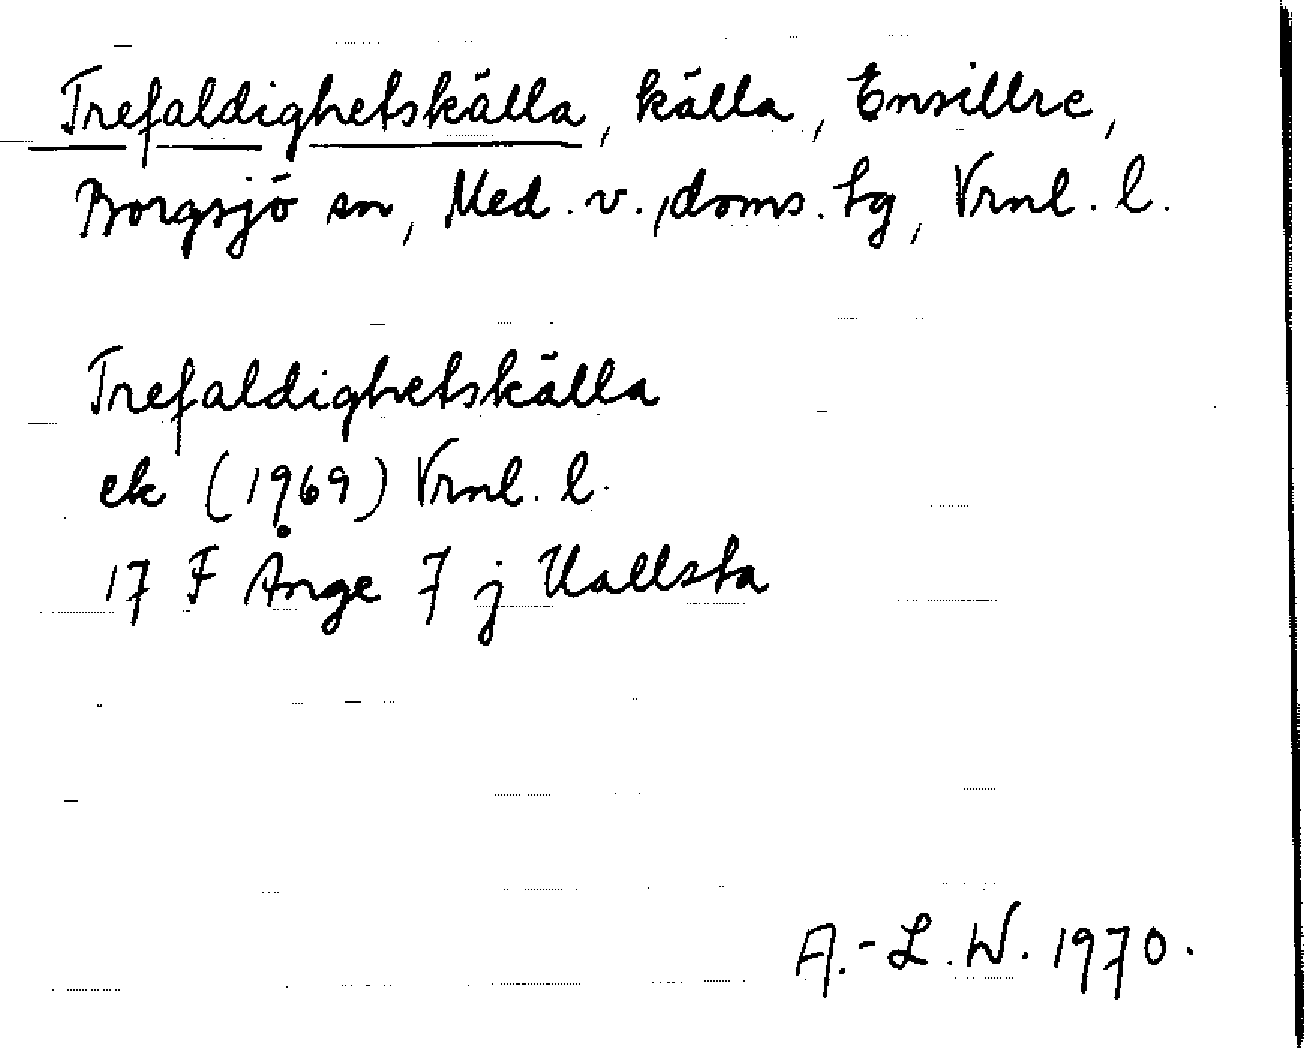 Trefaldighetskälla, källa, Ensillre,
Borgsjö sn, Med. v., doms. tg, Vrnl. l.
Trefaldighetskälla
ek (1969) Vrnl. l.
17 F Ånge 7 j Vallsta
A.-L. W. 1970.